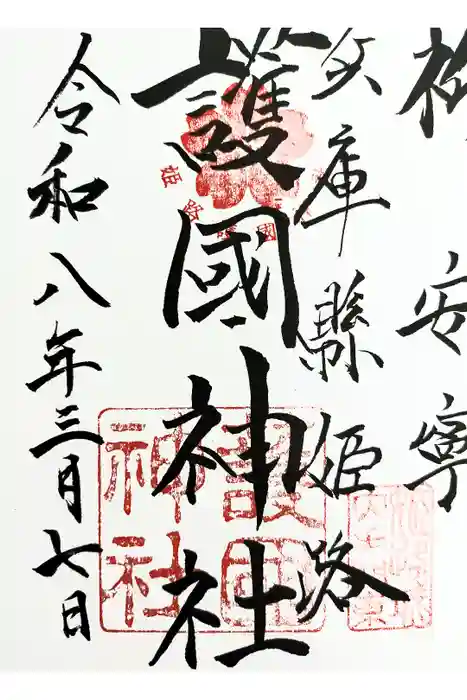 安寧
兵庫縣姫路
護國神社
令和八年三月七日
護國
神社